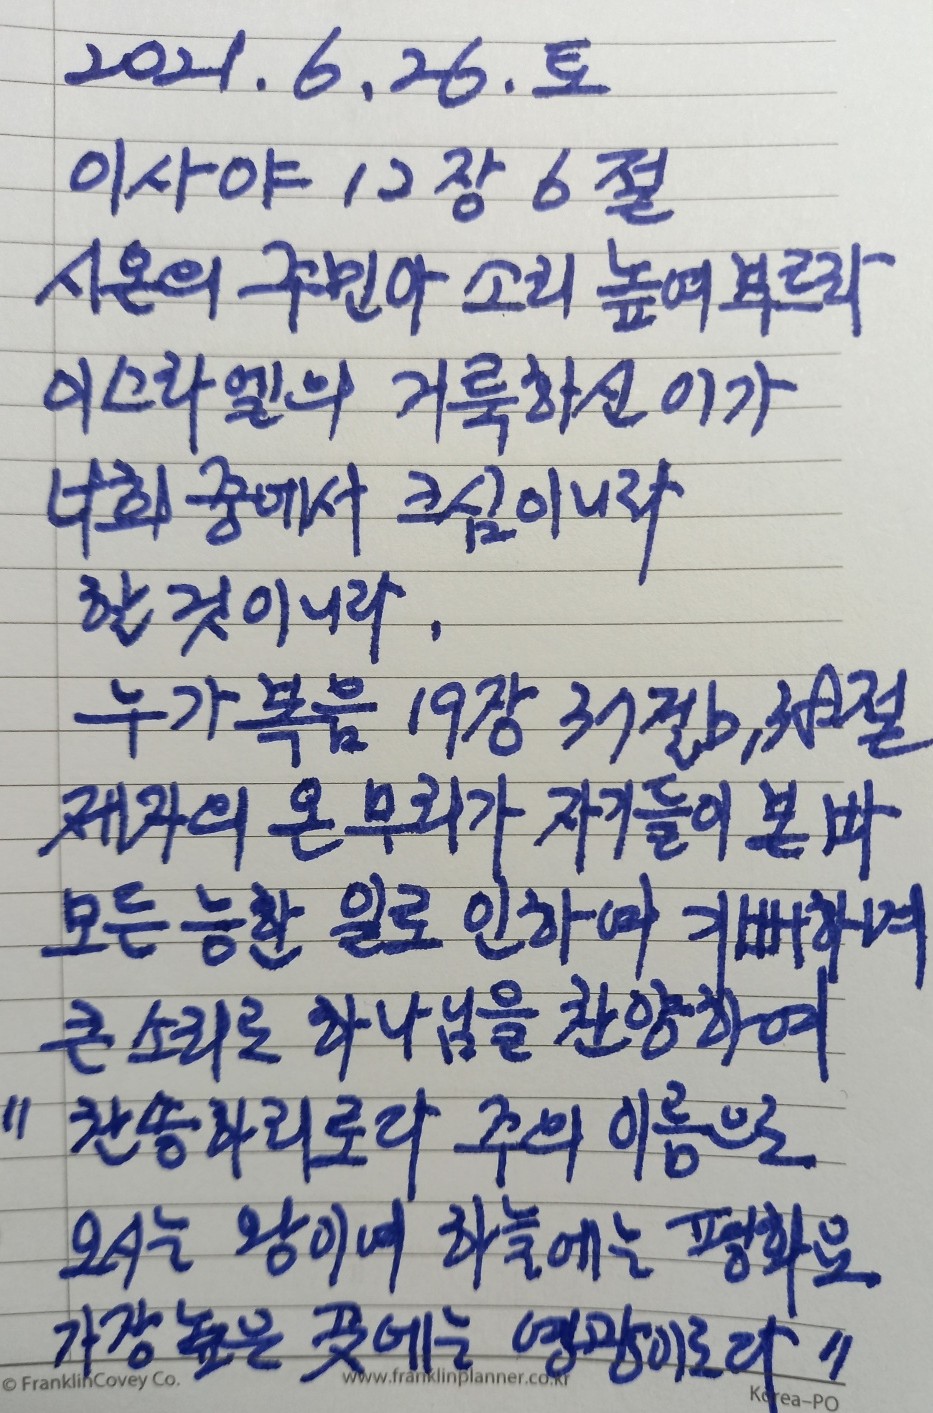 2021. 6. 26. 토
이사야 12장 6절
시온의 주민아 소리 높여 부르라
이스라엘의 거룩하신 이가
너희 중에서 크심이니라
할 것이니라.
누가복음 19장 37절b, 38절
제자의 온 무리가 자기들이 본 바
모든 능한 일로 인하여 기뻐하며
큰 소리로 하나님을 찬양하여
" 찬송하리로다 주의 이름으로
오시는 왕이여 하늘에는 평화요
가장 높은 곳에는 영광이로다 "
© FranklinCovey Co. www.franklinplanner.co.kr Korea-PO